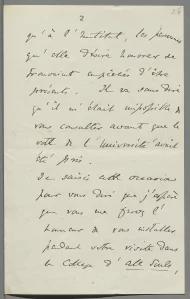 2
qu'à l'Institut, les personnes
qu'elle désire honorer se
trouvaient empêchées d'être
présents. Il va sans dire
qu'il m'était impossible de
vous consulter avant que le
vote de l'Université avait
été pris.
Je saisis cette occasion
pour vous dire que j'espère
que vous me ferez l'
honneur de vous installer
pendant votre visite dans
le College d'All Souls,